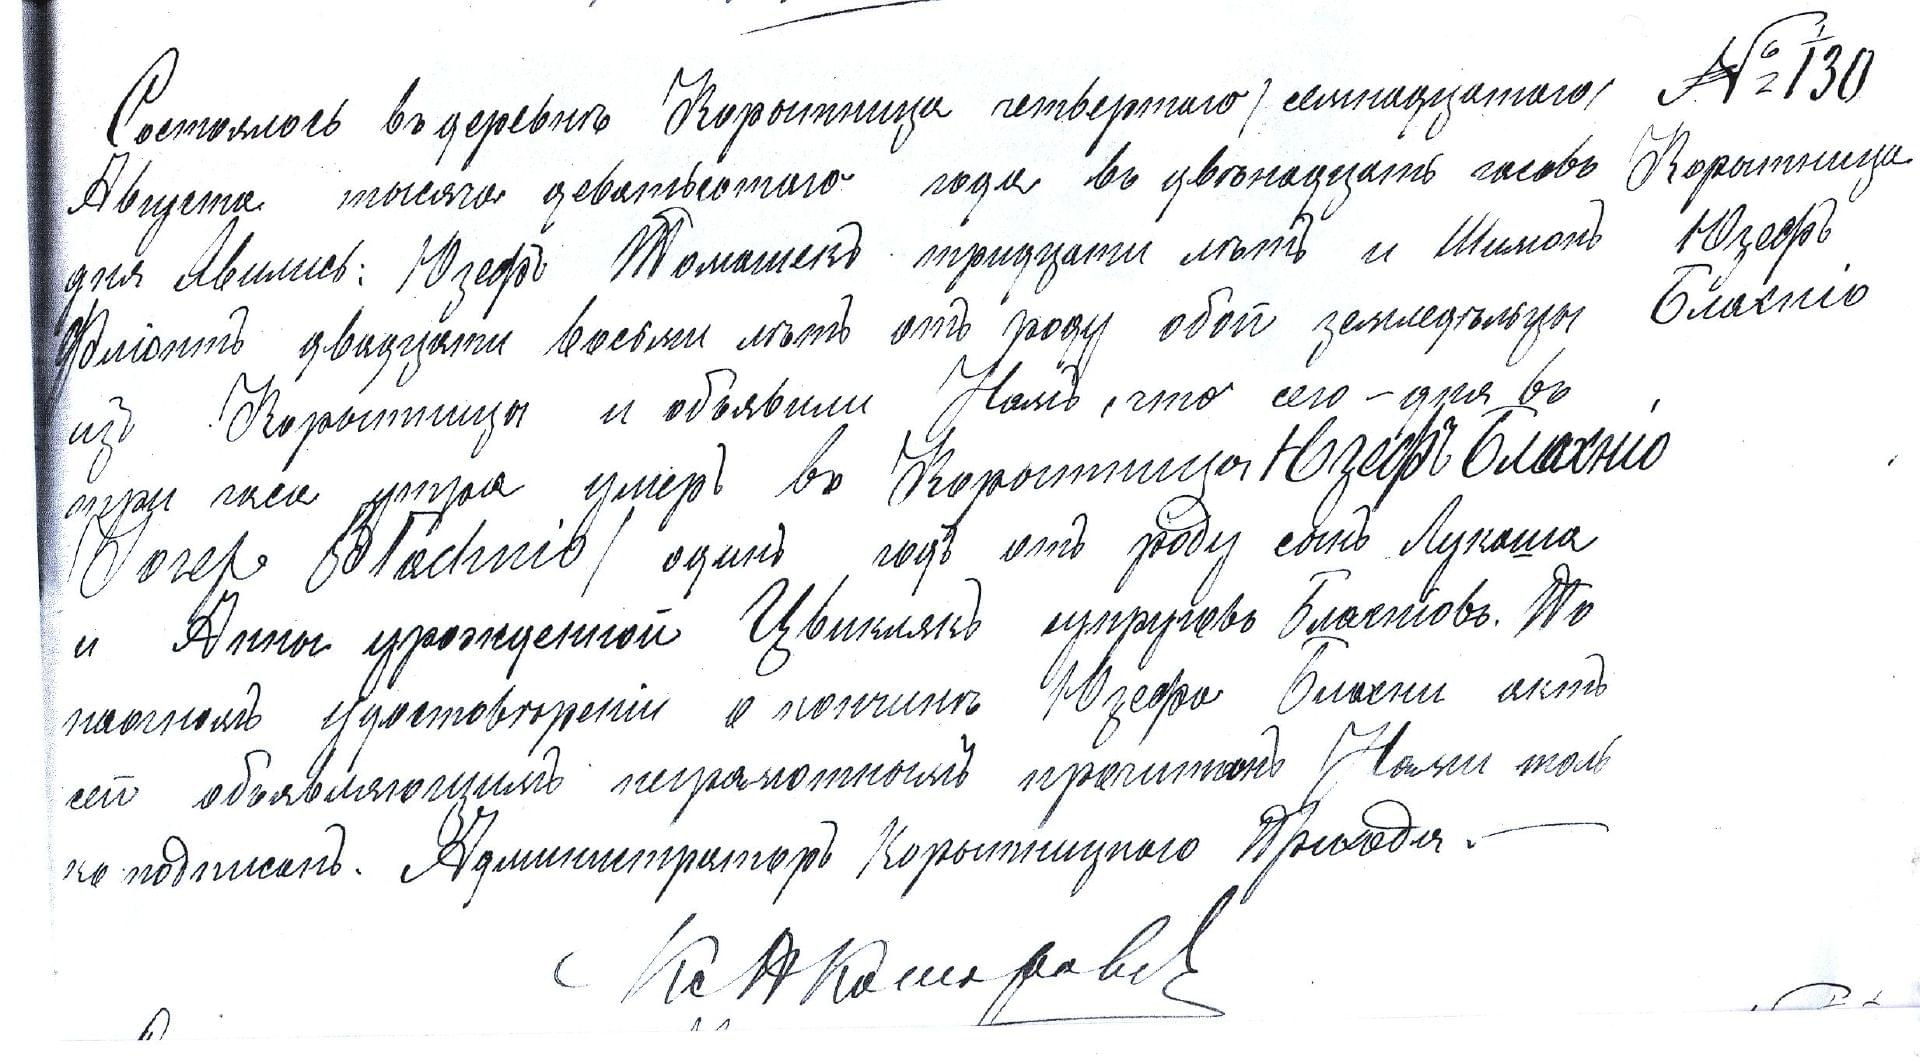 № 130
Состоялось въ деревнѣ Корытница четвертаго / семнадцатаго /
Августа тысяча девятьсотаго года въ двѣнадцать часовъ
Корытница
дня Явились: Юзефъ Томашекъ тридцати лѣтъ и Шимонъ
Юзефъ
двадцати восьми лѣтъ отъ роду обой земледѣльцы
Блахніо
изъ Корытницы и объявили Намъ, что сего-дня въ
три часа утра умеръ въ Корытницы Юзефъ Блахніо
/ Józef Błachnio / одинъ годъ отъ роду сынъ Лукаша
и Анны урожденной Цвиклякъ супруговъ Блахніовъ. По
настномъ удостовѣреніи о кончинѣ Юзефа Блахни актъ
сей объявляющимъ неграмотнымъ прочитанъ Нами толь
ко подписанъ. Администраторъ Корытницкаго Прихода.
Кс А